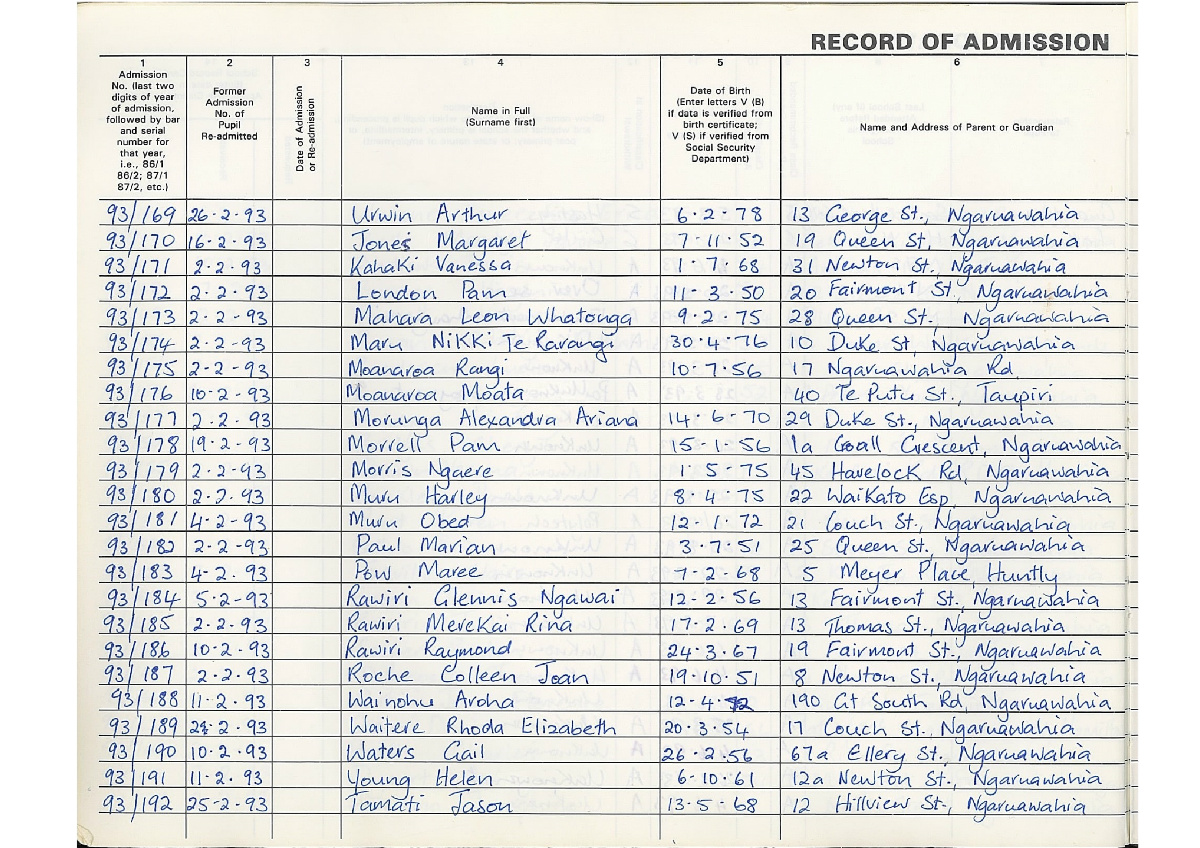 RECORD OF ADMISSION
1 2 3 4 5 6
Admission No. (last two digits of year of admission, followed by bar and serial number for that year, i.e., 86/1 86/2; 87/1 87/2, etc.)
Former Admission No. of Pupil Re-admitted
Date of Admission or Re-admission
Name in Full (Surname first)
Date of Birth (Enter letters V (B) if data is verified from birth certificate; V (S) if verified from Social Security Department)
Name and Address of Parent or Guardian
93/169 26-2-93 Urwin Arthur 6-2-78 13 George St., Ngaruawahia
93/170 16-2-93 Jones Margaret 7-11-52 19 Queen St, Ngaruawahia
93/171 2-2-93 Kahaki Vanessa 1-7-68 31 Newton St., Ngaruawahia
93/172 2-2-93 London Pam 11-3-50 20 Fairmont St., Ngaruawahia
93/173 2-2-93 Mahara Leon Whatonga 9-2-75 28 Queen St., Ngaruawahia
93/174 2-2-93 Maru Nikki Te Rarangi 30-4-76 10 Duke St, Ngaruawahia
93/175 2-2-93 Moanaroa Rangi 10-7-56 17 Ngaruawahia Rd,
93/176 10-2-93 Moanaroa Moata 40 Te Putu St., Taupiri
93/177 2-2-93 Morunga Alexandra Ariana 14-6-70 29 Duke St., Ngaruawahia
93/178 19-2-93 Morrell Pam 15-1-56 1a Goall Crescent, Ngaruawahia
93/179 2-2-93 Morris Ngaere 1-5-75 45 Havelock Rd, Ngaruawahia
93/180 2-2-93 Muru Harley 8-4-75 22 Waikato Esp, Ngaruawahia
93/181 4-2-93 Muru Obed 12-1-72 21 Couch St., Ngaruawahia
93/182 2-2-93 Paul Marian 3-7-51 25 Queen St., Ngaruawahia
93/183 4-2-93 Pow Maree 7-2-68 5 Meyer Place, Huntly
93/184 5-2-93 Rawiri Glennis Ngawai 12-2-56 13 Fairmont St., Ngaruawahia
93/185 2-2-93 Rawiri Merekai Rina 17-2-69 13 Thomas St., Ngaruawahia
93/186 10-2-93 Rawiri Raymond 24-3-67 19 Fairmont St., Ngaruawahia
93/187 2-2-93 Roche Colleen Joan 19-10-51 8 Newton St., Ngaruawahia
93/188 11-2-93 Wainohu Aroha 12-4- 190 Gt South Rd, Ngaruawahia
93/189 Waitere Rhoda Elizabeth 20-3-54 17 Couch St., Ngaruawahia
93/190 10-2-93 Waters Gail 26-2-56 67a Ellery St., Ngaruawahia
93/191 11-2-93 Young Helen 6-10-61 12a Newton St., Ngaruawahia
93/192 25-2-93 Tamati Jason 13-5-68 12 Hillview St., Ngaruawahia